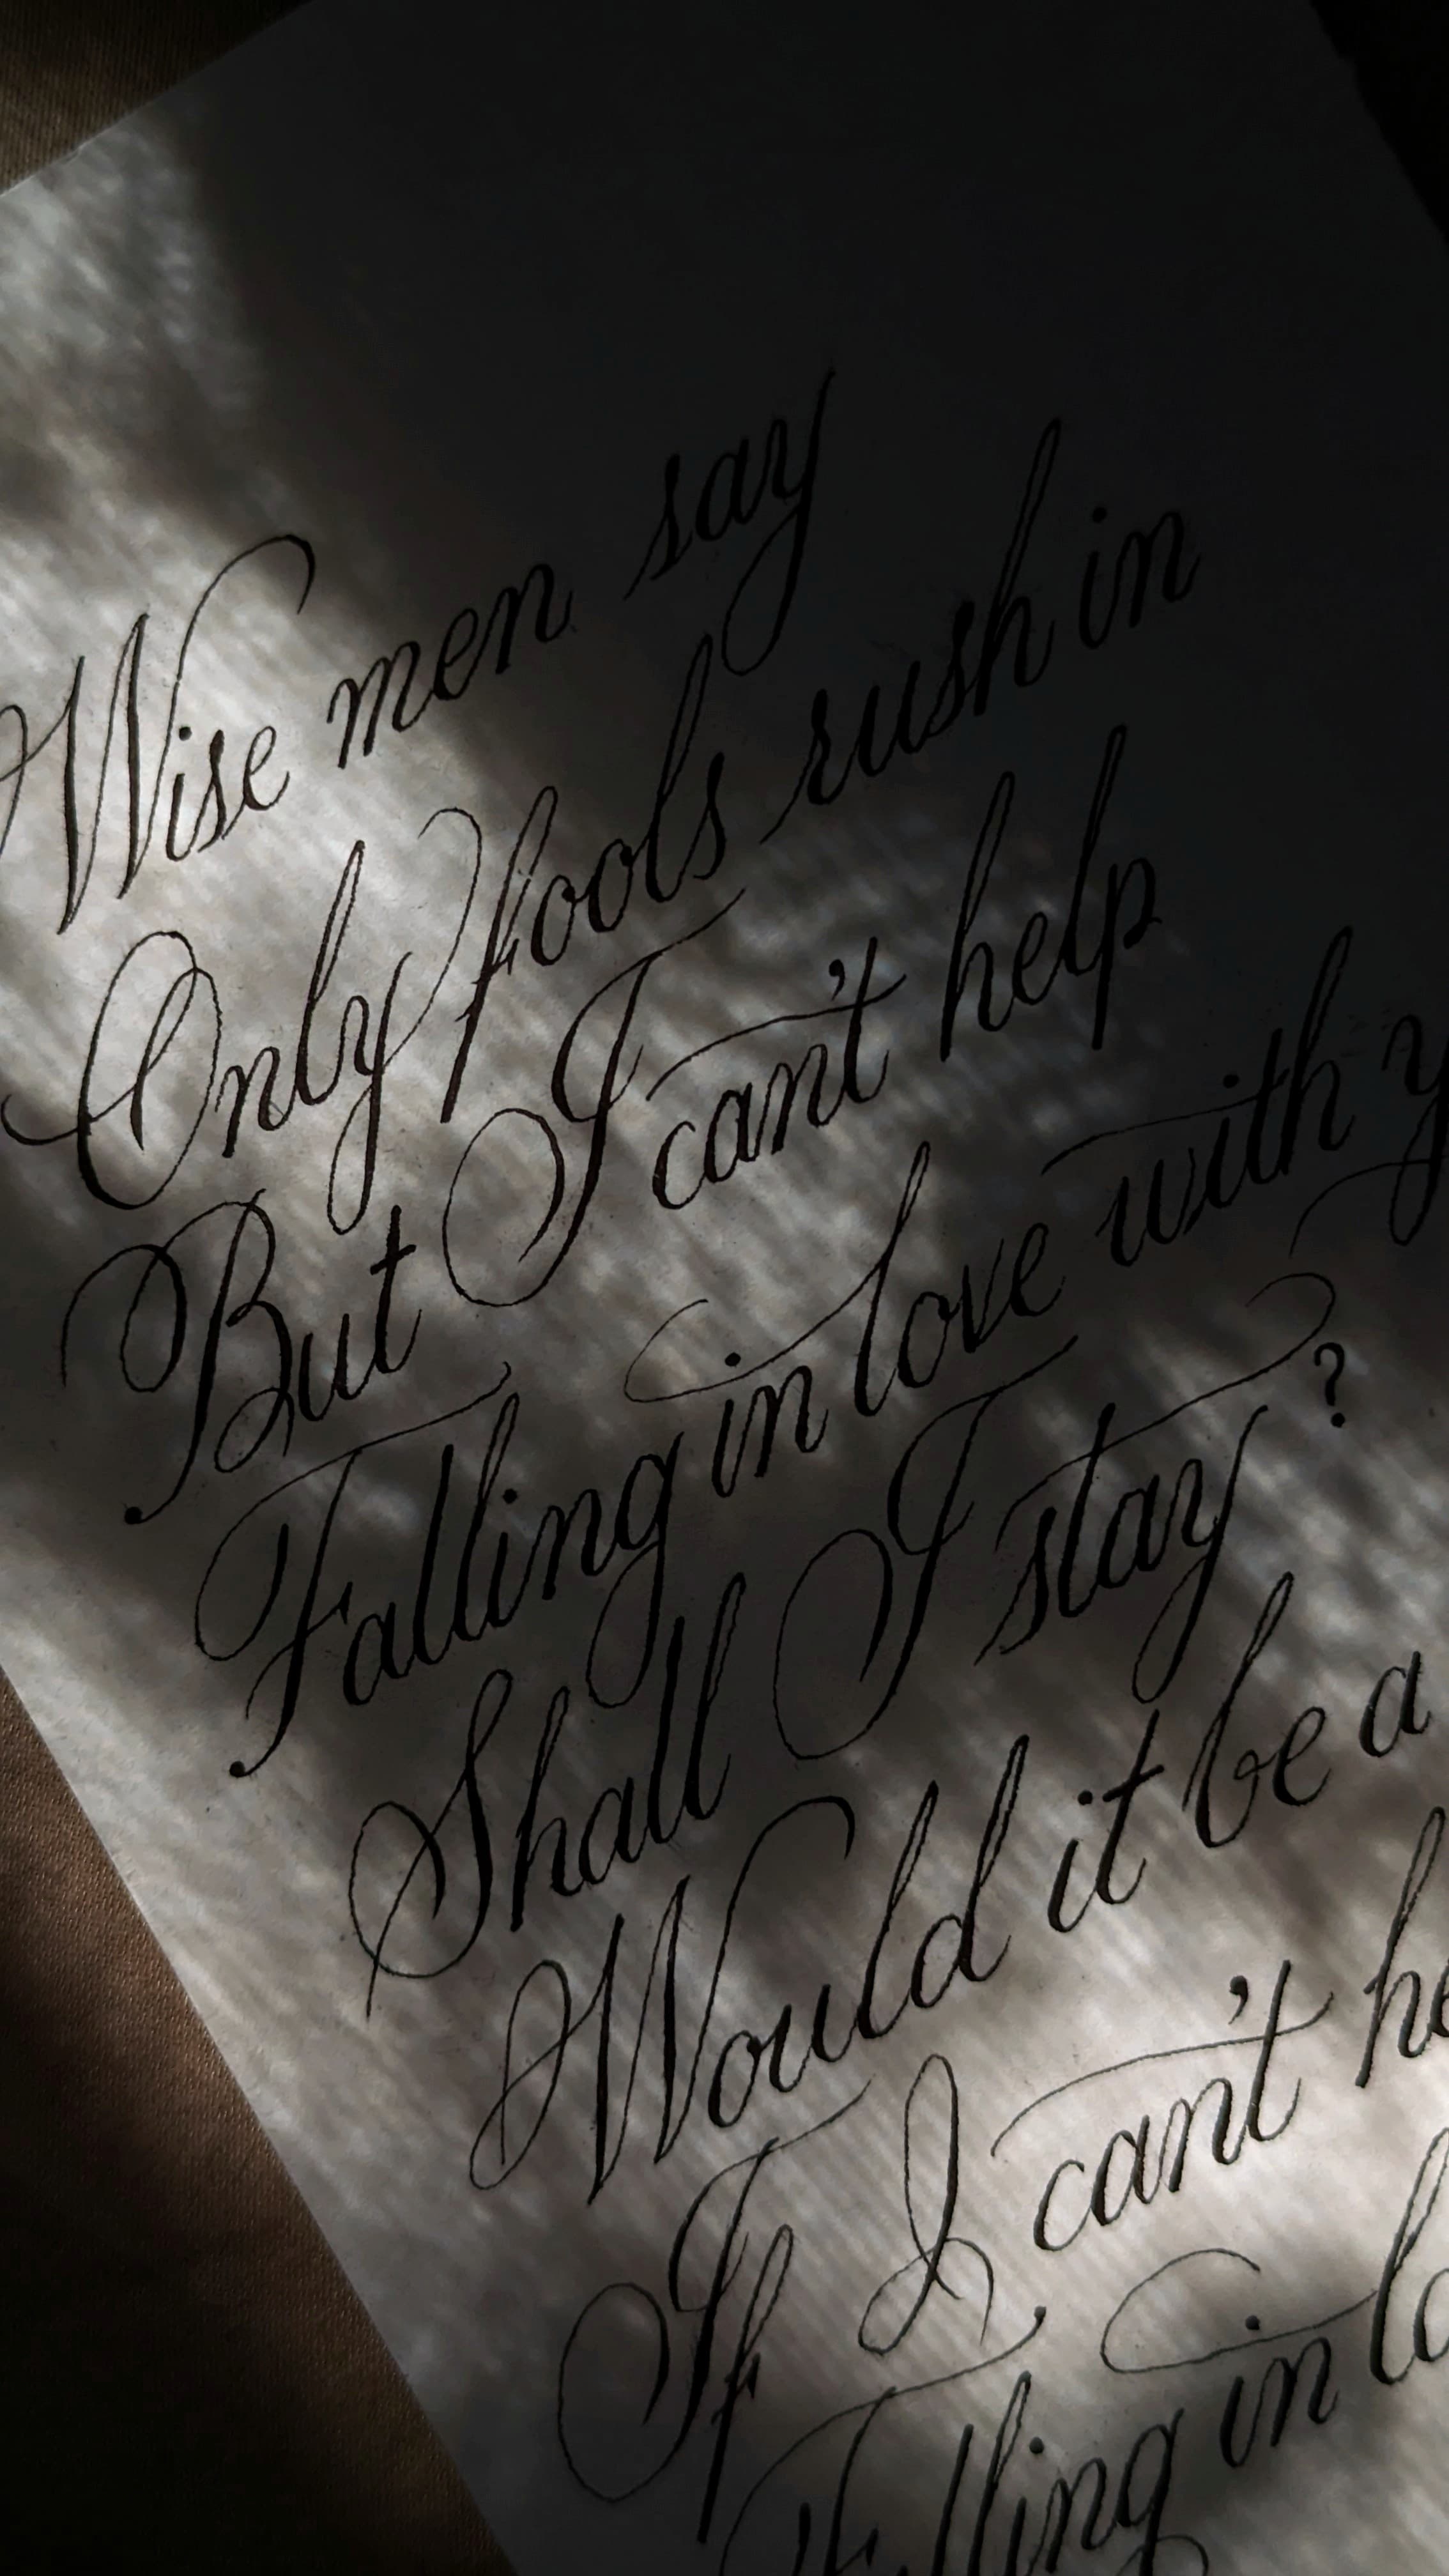 Wise men say
Only fools rush in
But I can't help
Falling in love with y
Shall I stay?
Would it be a
If I can't he
Falling in lo